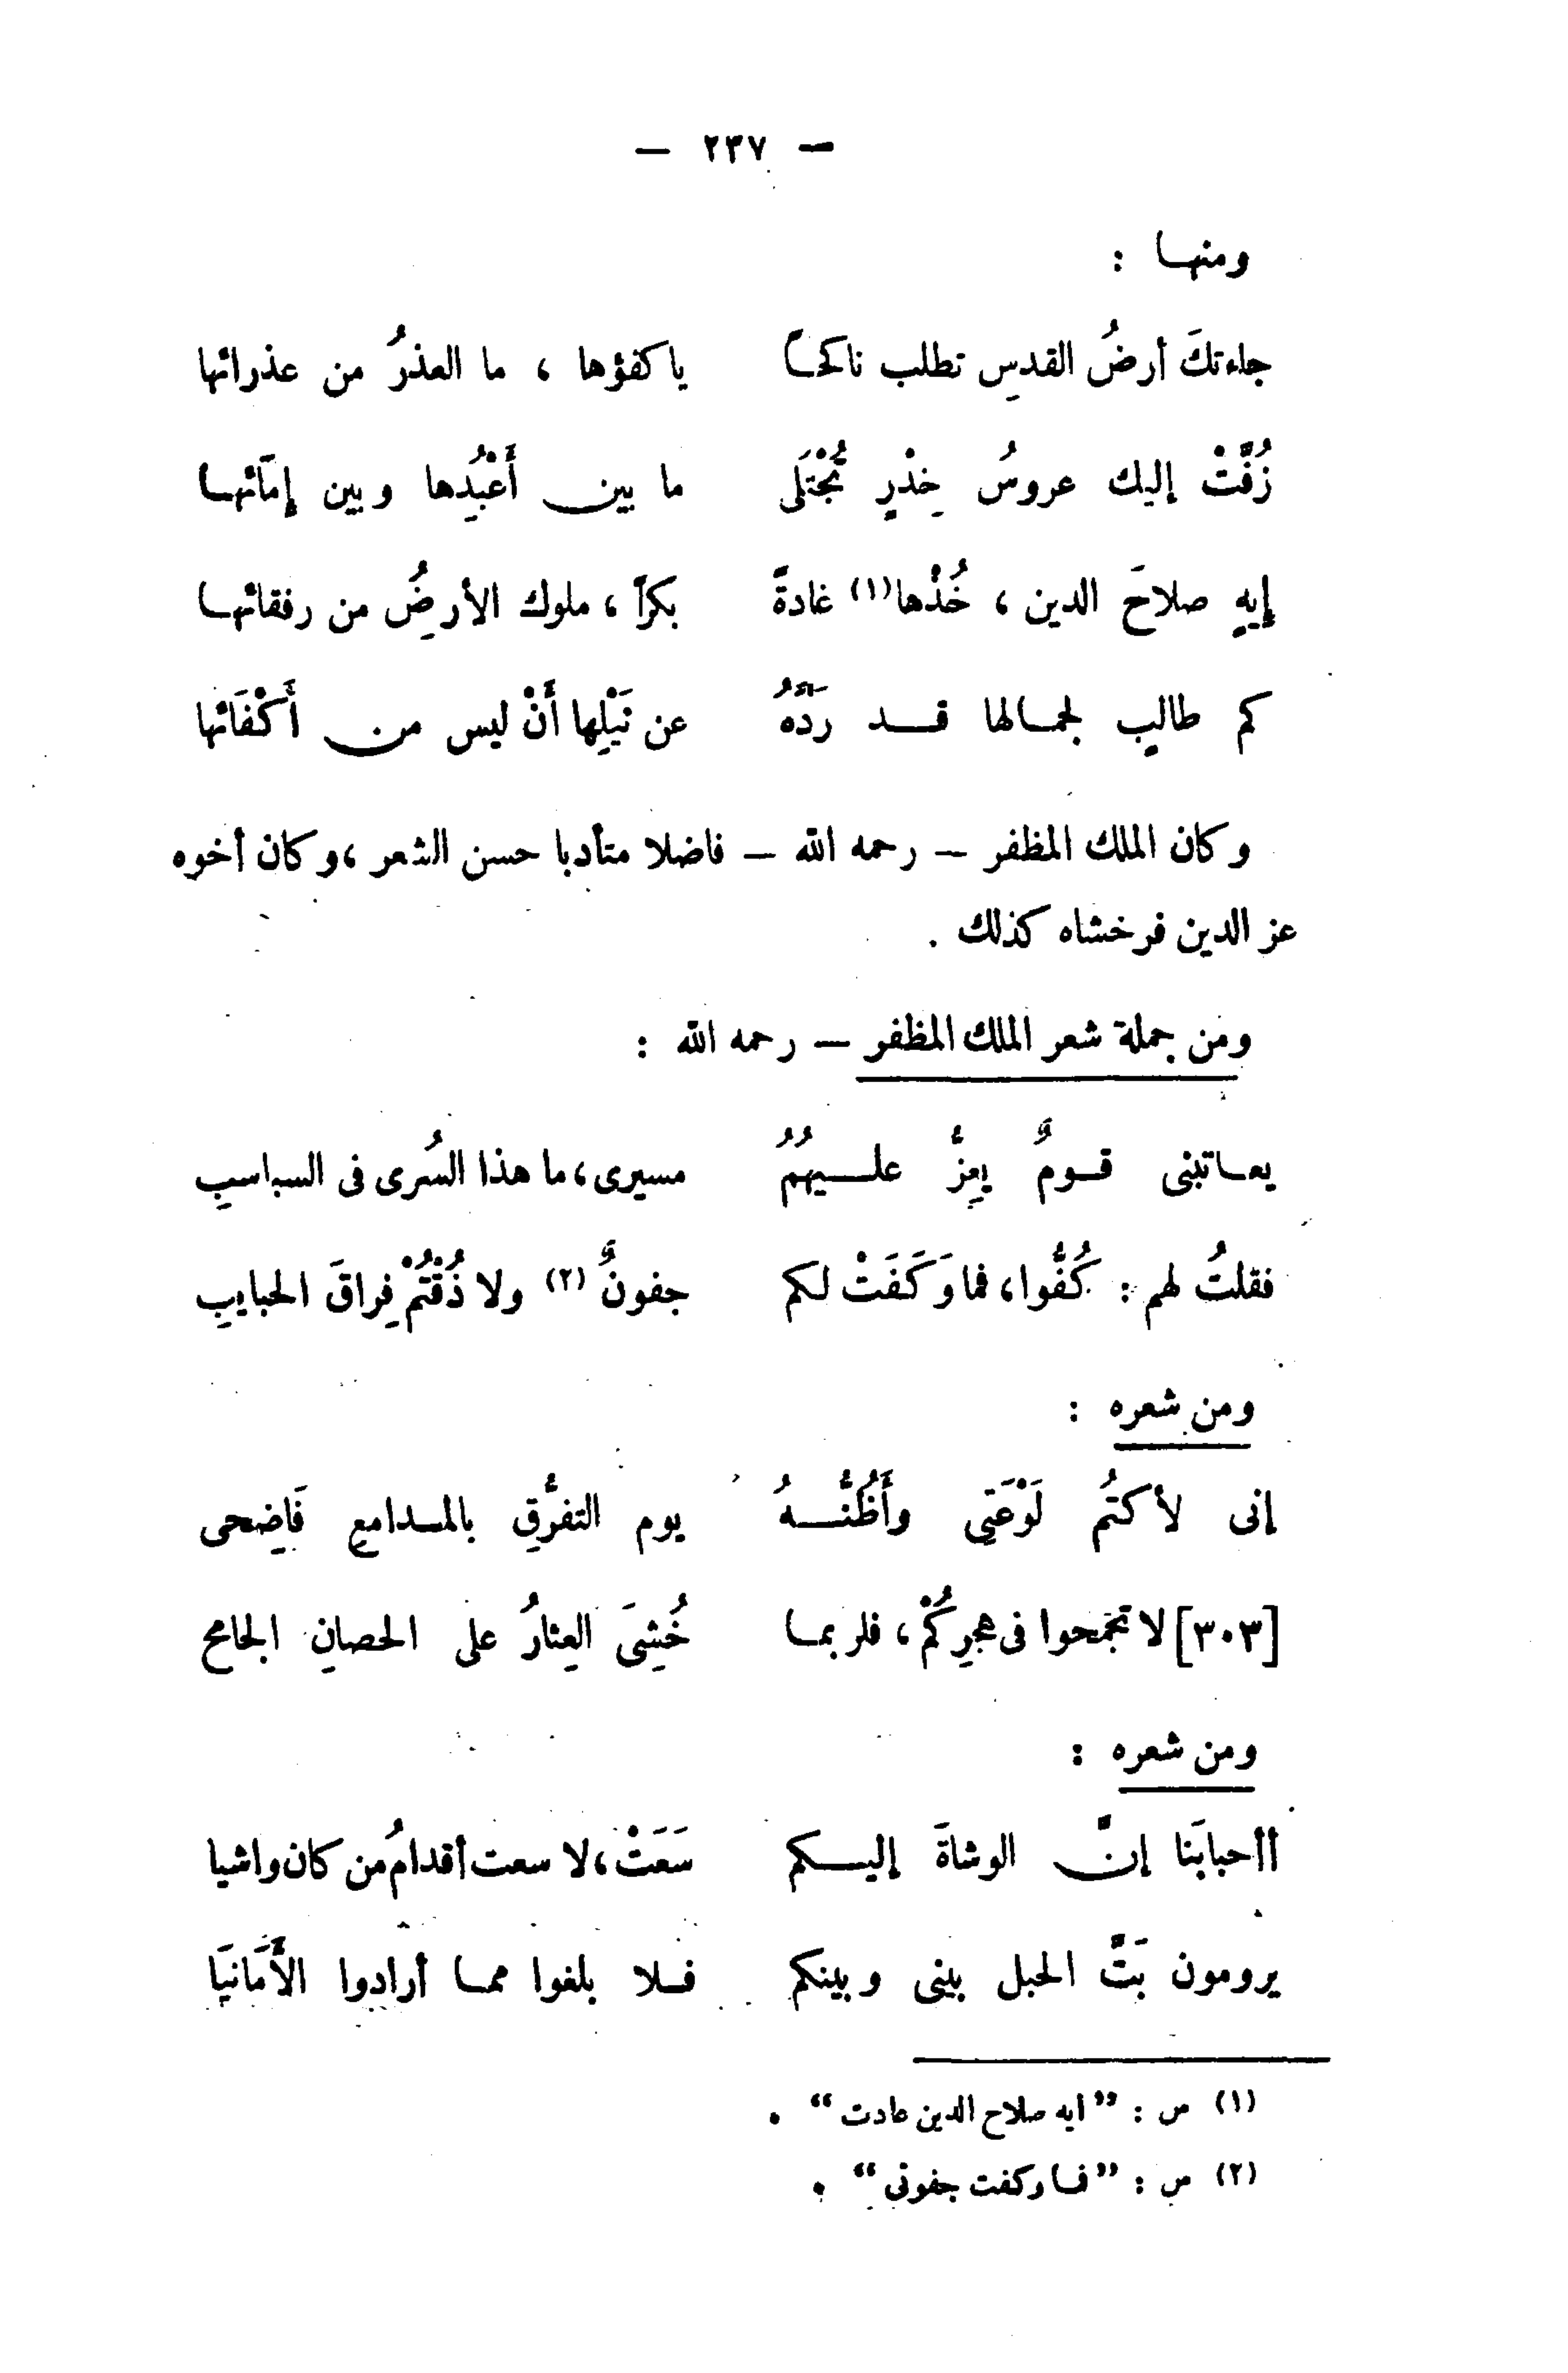 — ٢٣٧ —
ومنهـا :
جاءتكَ أرضُ القدسِ تطلب ناكحـاً ياكفؤها ، ما العذرُ من عذرائها
زُفَّتْ إليك عروسُ خِدْرٍ تُجْتَلَى ما بين أَعْبُدِها وبين إمَائهـا
إيهٍ صلاحَ الدين ، خُذْها(١) غادةً بكراً ، ملوك الأرضِ من رفقائهـا
كم طالبٍ لجمـالها قـد ردَّهُ عن نَيْلِها أَنْ ليس من أَكْفَائها
وكان الملك المظفر — رحمه الله — فاضلا متأدبا حسن الشعر ، وكان أخوه
عز الدين فرخشاه كذلك .
ومن جملة شعر الملك المظفر — رحمه الله :
يعـاتبنى قـومٌ يعِزُّ علـيهمُ مسيرى ، ما هذا السُرى فى السباسبِ
فقلتُ لهم : كُفُّوا ، فما وَكَفَتْ لكم جفونٌ (٢) ولا ذُقْتُمْ فِراقَ الحبايبِ
ومن شعره :
إنى لأكتمُ لَوْعَتِى وأَظُنُّـهُ يوم التفرُّقِ بالمـدامعِ فَاضِحى
[٣٠٣] لا تجمحوا فى هجرِكُمْ ، فلربمـا خُشِىَ العِثارُ على الحصانِ الجامح
ومن شعره :
أأحبابَنا إنَّ الوشاةَ إليـكم سَعَتْ ، لا سعت أقدامُ من كان واشيا
يرومون بَتَّ الحبل بينى وبينكم فـلا بلغوا ممـا أرادوا الأَمَانيَا
(١) س : ” ايه صلاح الدين عادت “ .
(٢) س : ” فـا وكفت جفونى “ .